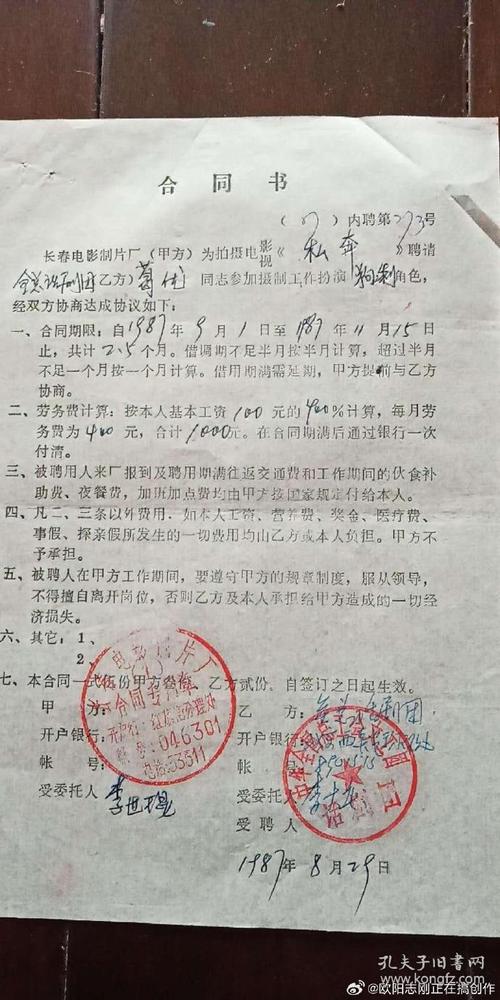 合同书
(87)内聘第273号
长春电影制片厂(甲方)为拍摄电影视《私奔》聘请
全总话剧团乙方)葛优同志参加摄制工作扮演 角色,
经双方协商达成协议如下:
一、合同期限:自1987年9月1日至1987年11月15日
止,共计2.5个月。借调期不足半月按半月计算,超过半月
不足一个月按一个月计算。借用期满需延期,甲方提前与乙方
协商。
二、劳务费计算:按本人基本工资100元的400%计算,每月劳
务费为400元,合计1000元。在合同期满后通过银行一次
付清。
三、被聘用人来厂报到及聘用期满往返交通费和工作期间的伙食补
助费、夜餐费,加班加点费均由甲方按国家规定付给本人。
四、凡二、三条以外费用.如本人工资、营养费、奖金、医疗费、
事假、探亲假所发生的一切费用均由乙方或本人负担。甲方不
予承担。
五、被聘人在甲方工作期间,要遵守甲方的规章制度,服从领导,
不得擅自离开岗位,否则乙方及本人承担给甲方造成的一切经
济损失。
六、其它:1、
2、
七、本合同一式 份甲方叁份,乙方贰份,自签订之日起生效。
甲方:
开户银行:
帐号:
受委托人
乙方:全总话剧团
开户银行:
帐号:
受委托人
受聘人
1987年8月29日
电影制片厂
合同专用章
开户行:
帐号:046301
电话:53311
话剧团
孔夫子旧书网
@欧阳志刚正在搞创作
kongfz.com